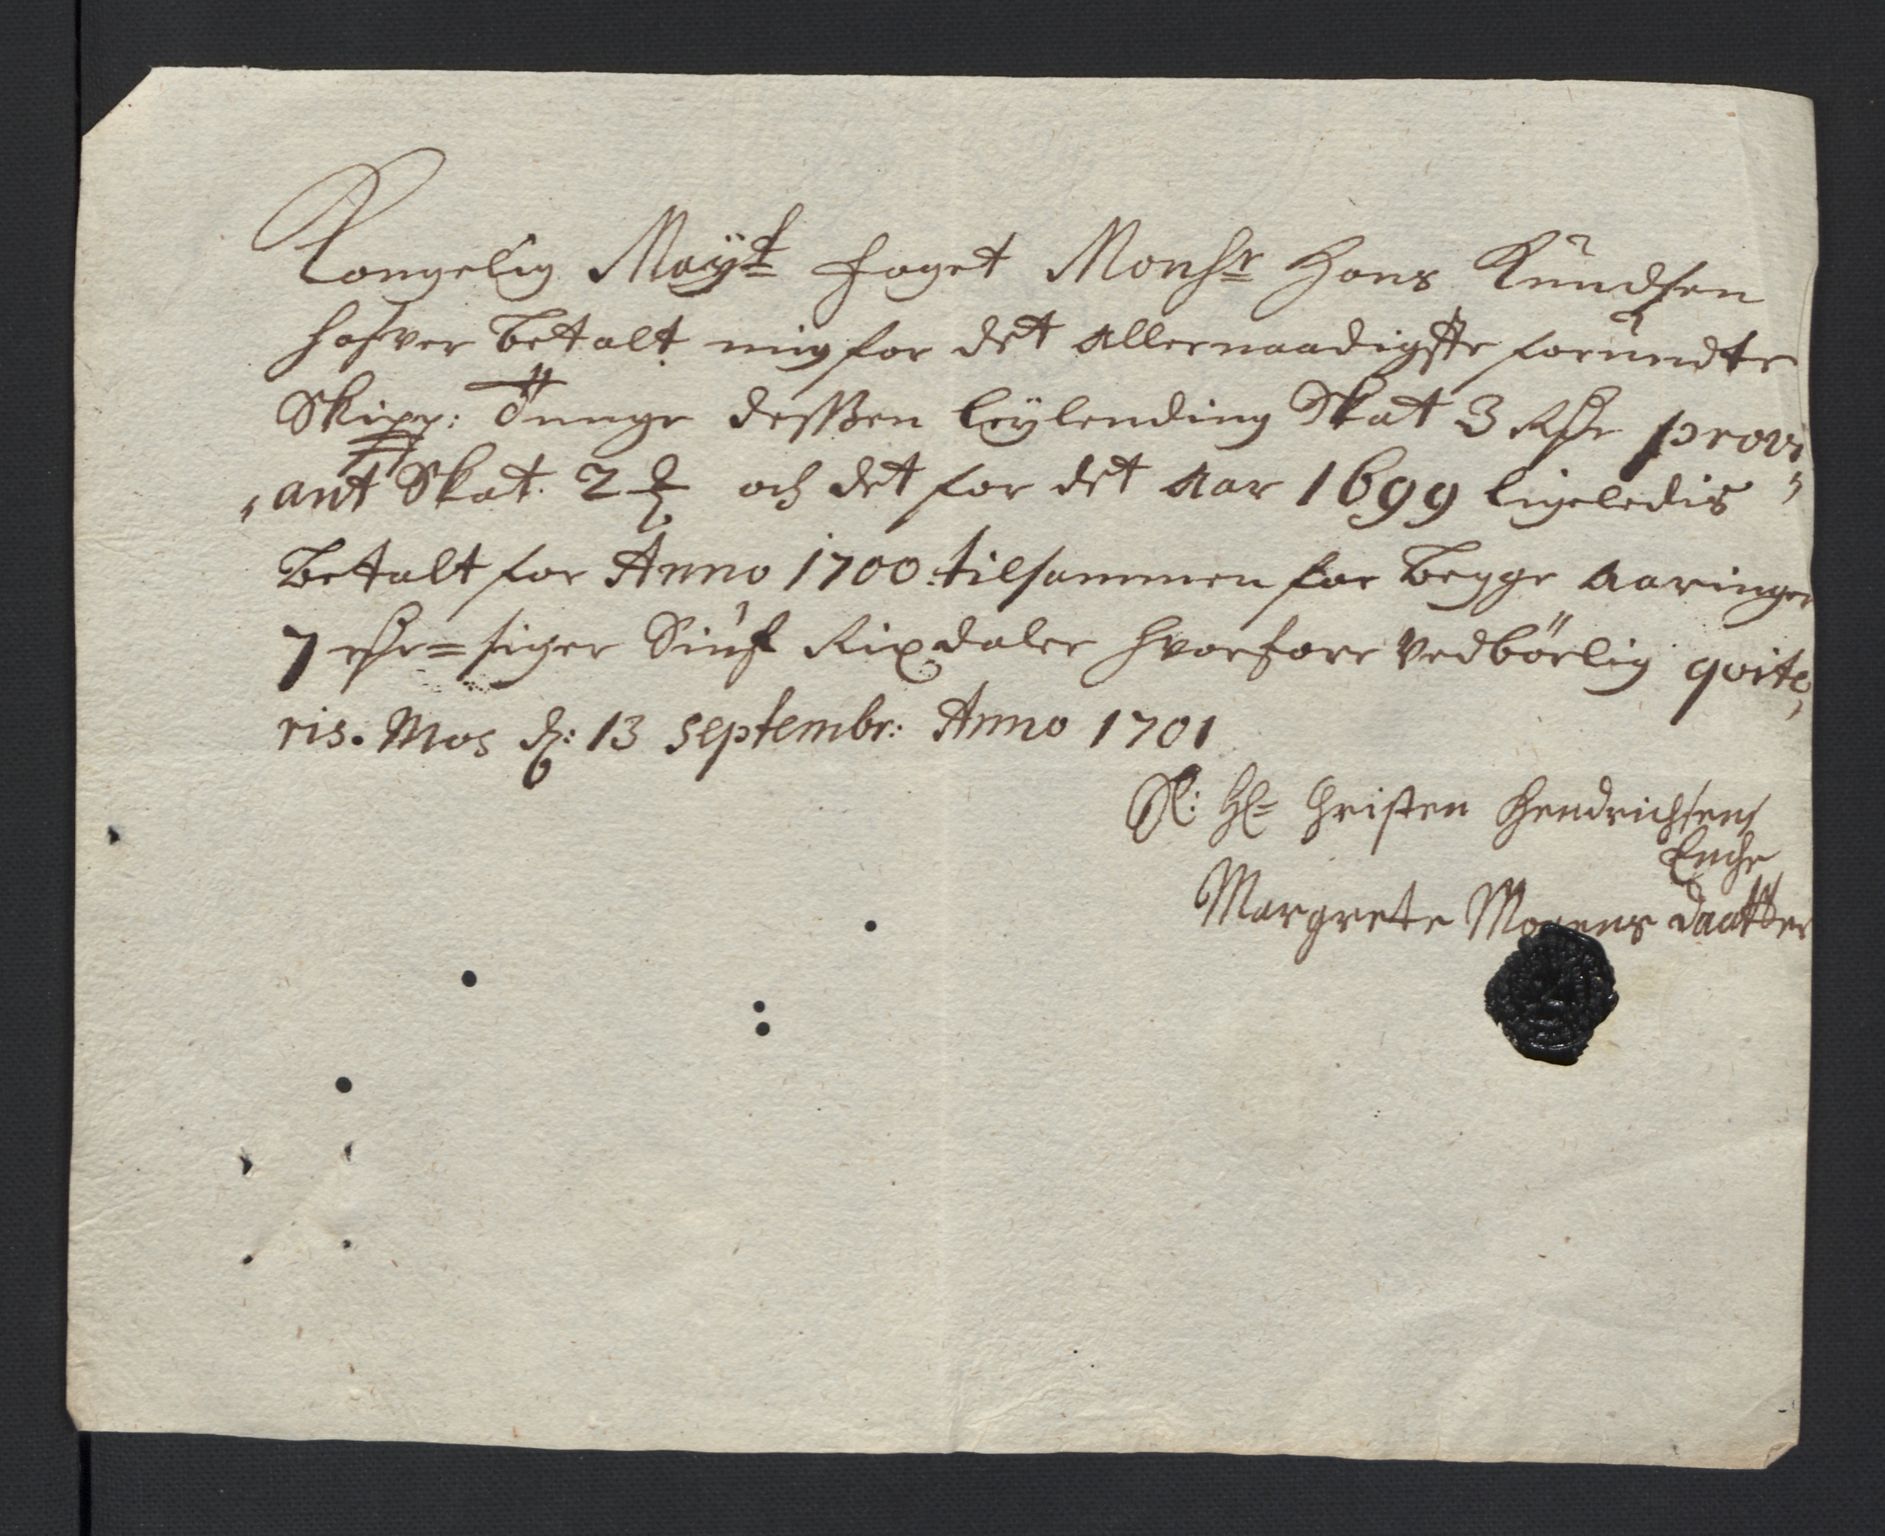 Kongelig Mayt foget Monsr Hans Knudsen
hafver betalt mig for det allernaadigste forundte
Skipp: Tunge dessßen leylending Skat 3 Rdr provi
ant Skat 2 och det for det Aar 1699 ligeledis
betalt for Anno 1700: tilsammen for begge aaringer
7 rdr= siger Siuf Rixdaler hvorfore vedbörlig qvite
ris. Mos d: 13 Septembr: Anno 1701
Sl: Hr Christen Hendrichsens
Enche
Margrete Mogens daatter